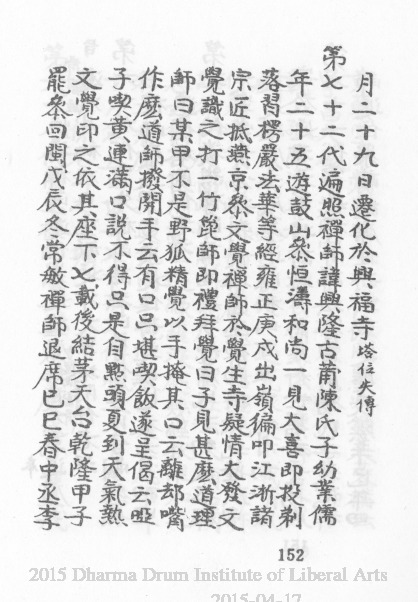 月二十九日遷化於興福寺塔位失傳
第七十二代遍照禪師諱興隆古莆陳氏子幼業儒
年二十五遊鼓山叅恒濤和尚一見大喜即投剃
落習楞嚴法華等經雍正庚戌出嶺徧叩江浙諸
宗匠抵燕京叅文覺禪師於覺生寺疑情大發文
覺識之打一竹篦師即禮拜覺曰子見甚麽道理
師曰某甲不是野狐精覺以手掩其口云離却嘴
作麽道師撥開手云有口只堪喫飯遂呈偈云啞
子喫黄連滿口說不得只是自點頭夏到天氣熱
文覺印之依其座下七載後結茅天台乾隆甲子
罷叅回閩戊辰冬常敏禪師退席已巳春中丞李
152
2015 Dharma Drum Institute of Liberal Arts
2015-04-17